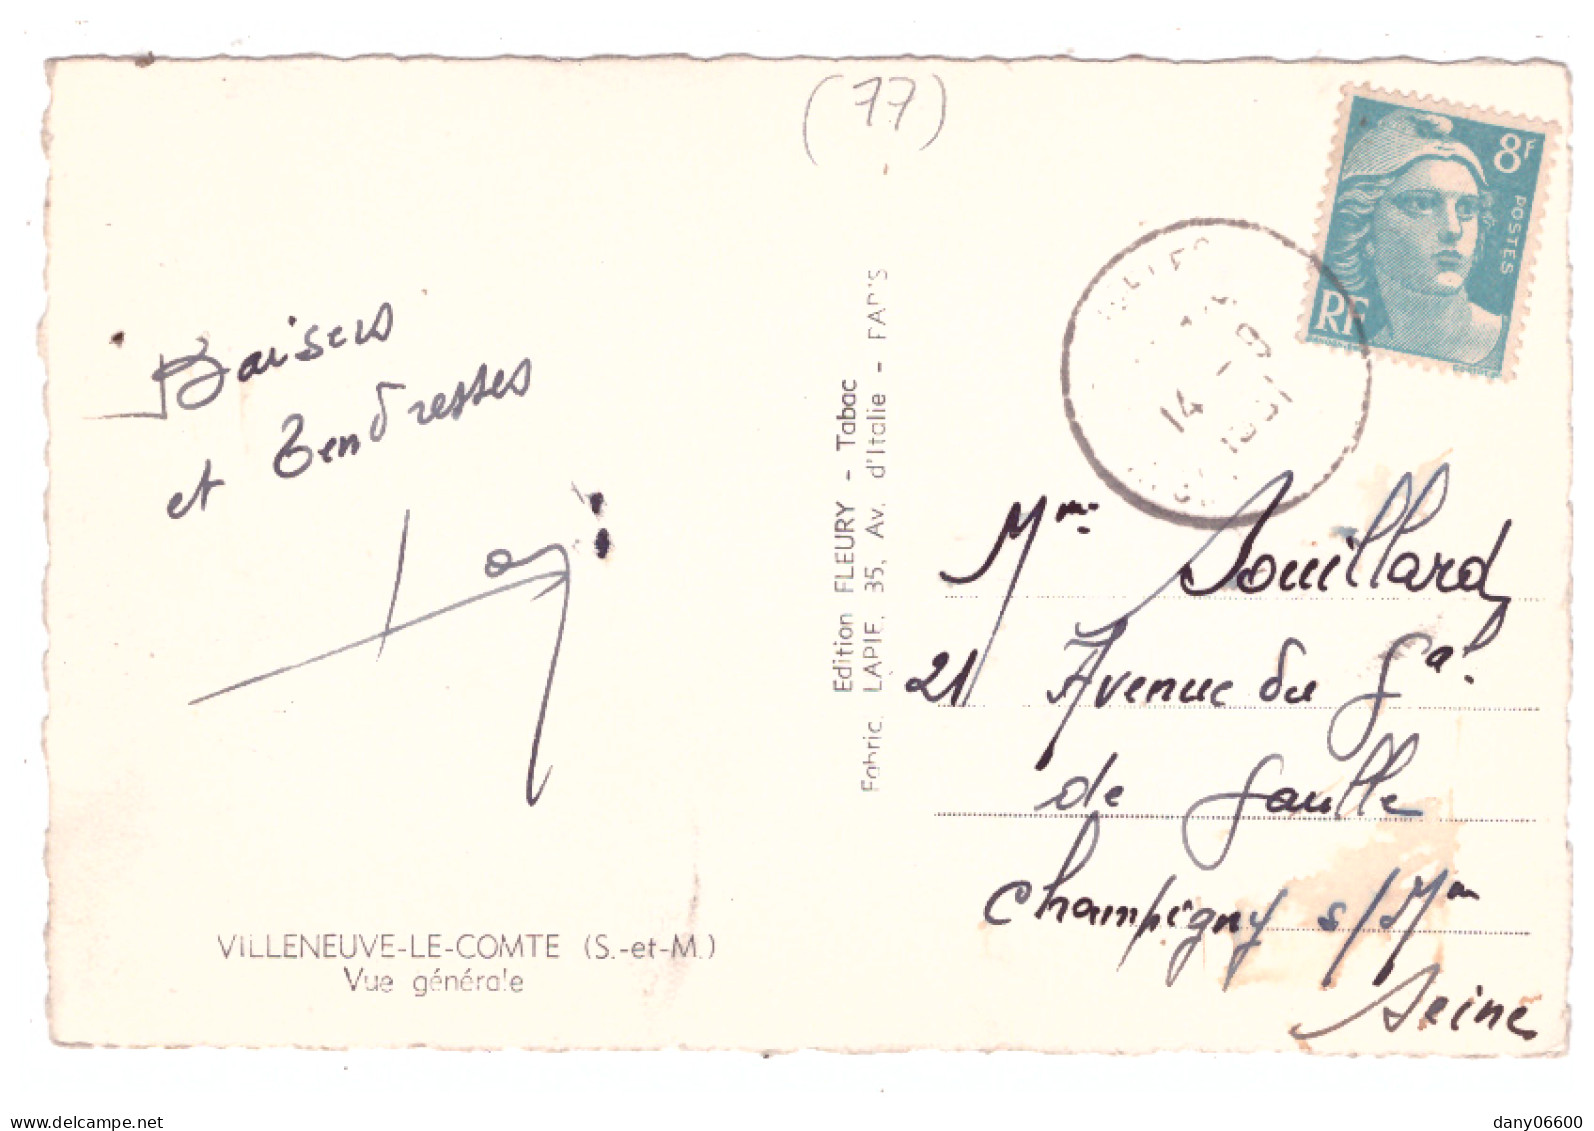 (77)
8F
POSTES
RF
14 - 9
1951
Baisers
et Tendresses
Edition FLEURY - Tabac
Fabric. LAPIE, 35, Av. d'Italie - PARIS
Mme Souillard
21 Avenue du Gal
de Gaulle
Champigny s/Mne
Seine
VILLENEUVE-LE-COMTE (S.-et-M.)
Vue générale
dany06600